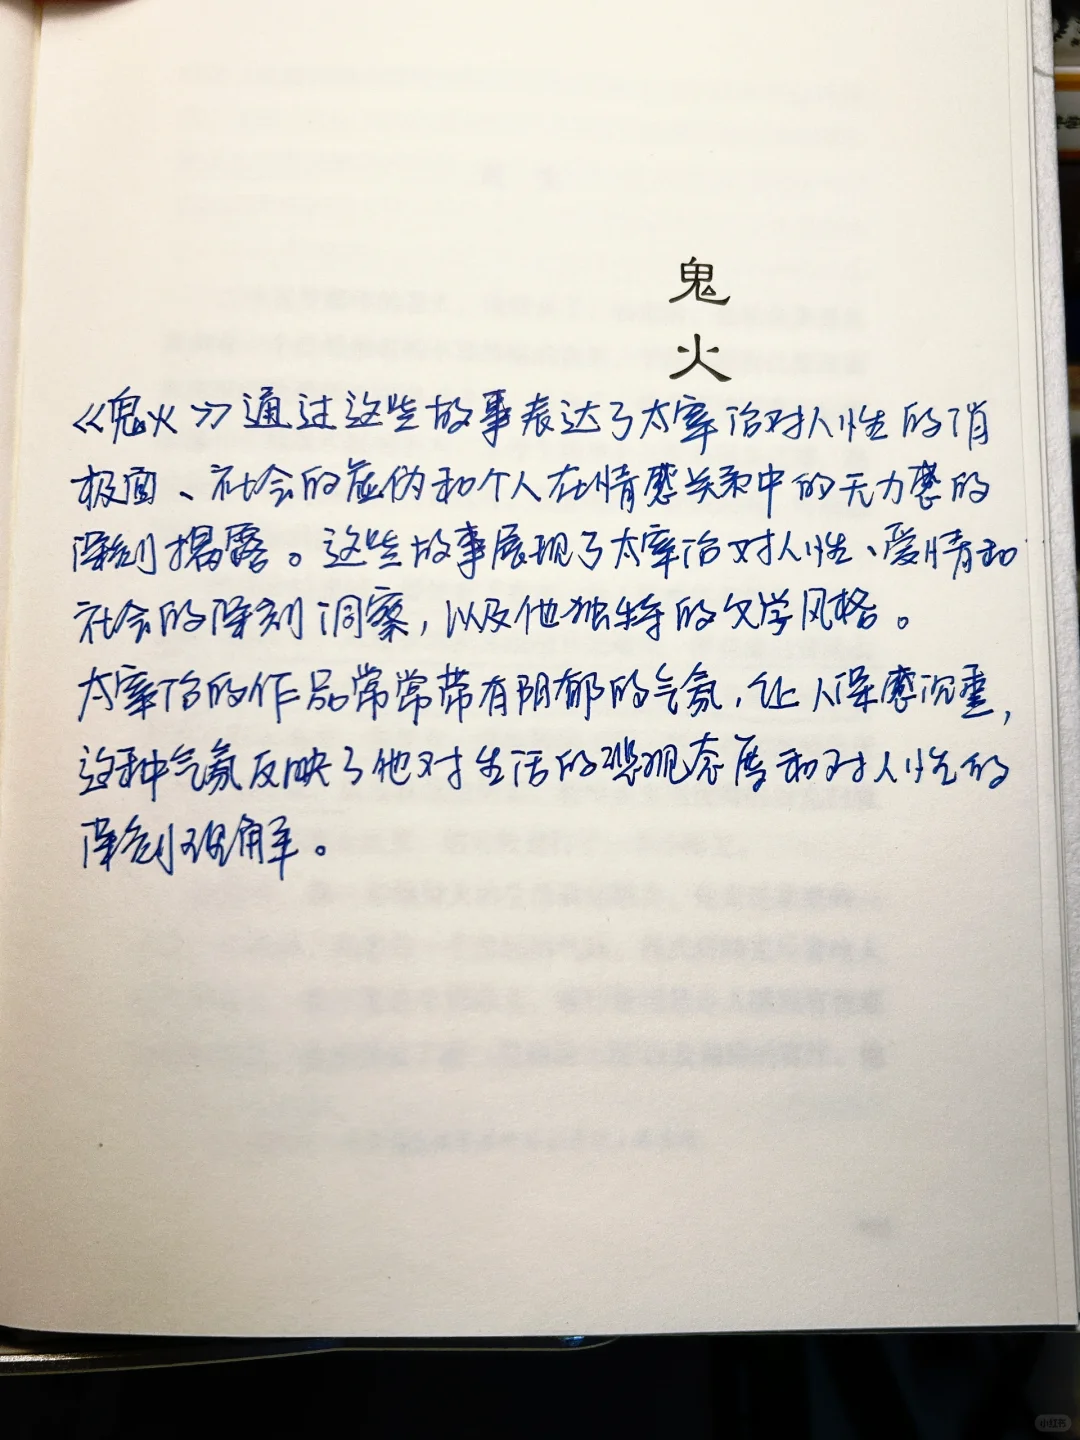 鬼
火
《鬼火》通过这些故事表达了太宰治对人性的消
极面、社会的虚伪和个人在情感关系中的无力感的
深刻揭露。这些故事展现了太宰治对人性、爱情和
社会的深刻洞察，以及他独特的文学风格。
太宰治的作品常常带有阴郁的气氛，让人深感沉重，
这种气氛反映了他对生活的悲观态度和对人性的
深刻理解。
小红书